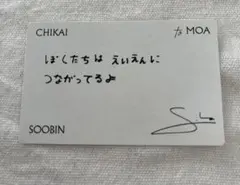 CHIKAI to MOA
ぼくたちは えいえんに
つながってるよ
SOOBIN